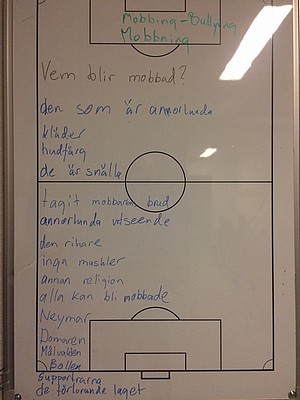 Mobbing - Bullying
Mobbning
Vem blir mobbad?
den som är annorlunda
kläder
hudfärg
de är snälla
tagit mobbaren brud
annorlunda utseende
den rikare
inga muskler
annan religion
alla kan bli mobbade
Neymar
Domaren
Målvakten
Bollen
Supportrarna
de förlorande laget